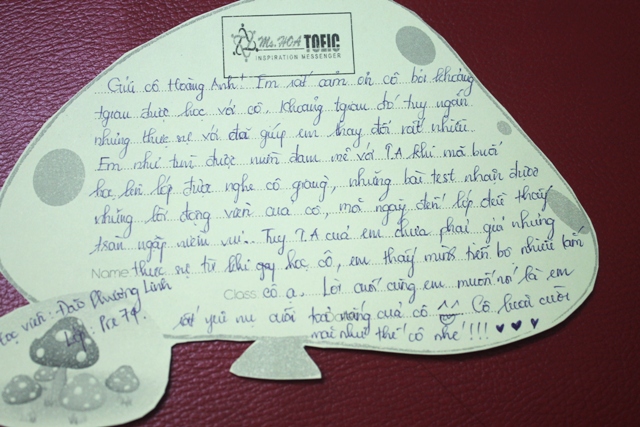 Ms. HOA TOEIC
INSPIRATION MESSENGER
Gửi cô Hoàng Anh! Em rất cảm ơn cô bởi khoảng
tgian được học với cô. Khoảng tgian đó tuy ngắn
nhưng thực sự với đã giúp em thay đổi rất nhiều.
Em như tìm được niềm đam mê với T.A khi mà buổi
học lên lớp được nghe cô giảng, những bài test nhận được
những lời động viên của cô, mà ngày đến lớp đều thấy
tràn ngập niềm vui.. Tuy T.A của em chưa phải giỏi nhưng
Name thực sự từ khi học cô, em thấy mình tiến bộ nhiều lắm
Class cô ạ. Lời cuối cùng em muốn nói là em
rất yêu nụ cười toả nắng của cô ^^ Cô luôn cười
mãi như thế cô nhé!!! ♥ ♥ ♥
Học viên: Đào Phương Linh
Lớp: Pre 79